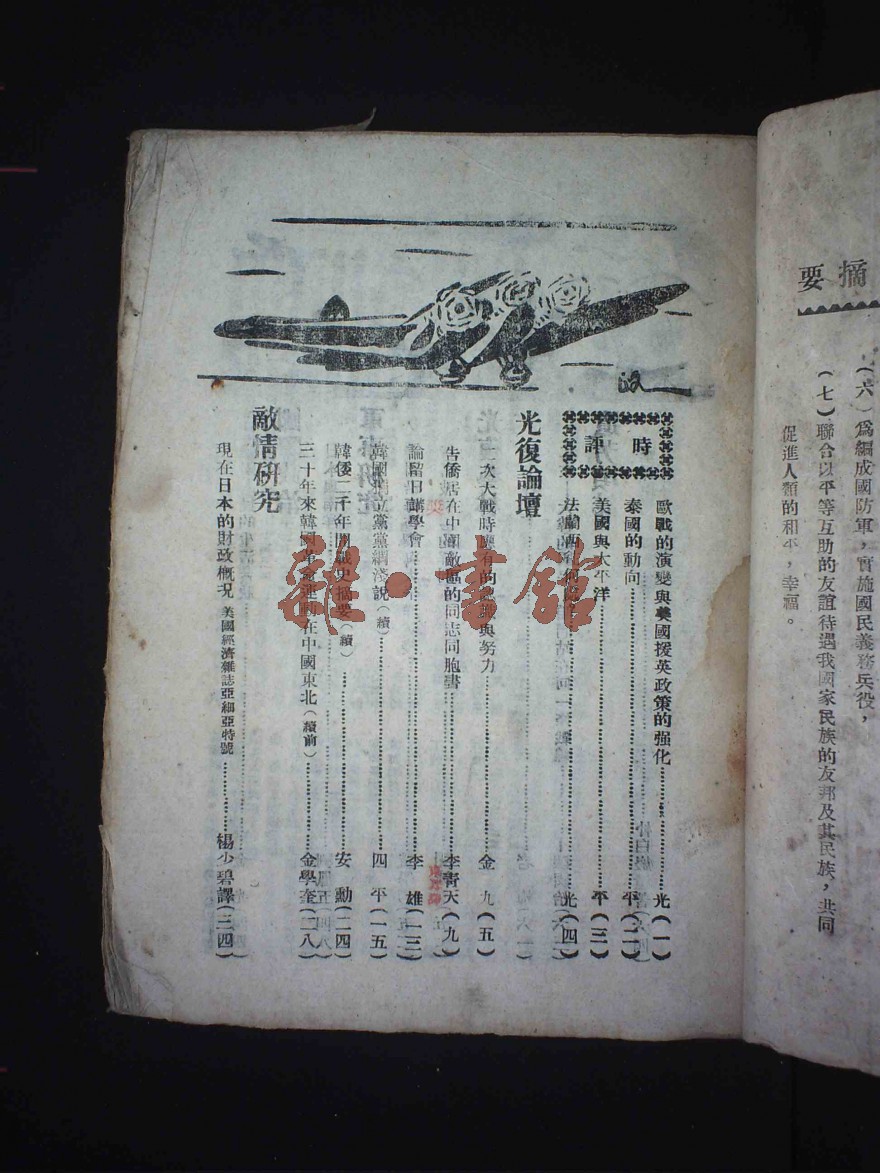 摘要
(六)爲編成國防軍,實施國民義務兵役,
(七)聯合以平等互助的友誼待遇我國家民族的友邦及其民族,共同
促進人類的和平,幸福。
時評
歐戰的演變與美國援英政策的强化……光(一)
泰國的動向……平(二)
美國與太平洋……平(三)
法蘭西……光(四)
光復論壇
二次大戰時應有的認識與努力……金九(五)
告僑居在中國敵區的同志同胞書……李靑天(九)
論留日韓學會……李雄(一三)
韓國獨立黨黨綱淺說(續)……四平(一五)
韓倭二千年間戰史摘要(續)……安勳(二四)
三十年來韓國革命運動在中國東北(續前)……金學奎(二八)
敵情研究
現在日本的財政概况 美國經濟雜誌亞細亞特號……楊少碧譯(三四)
雜·書館